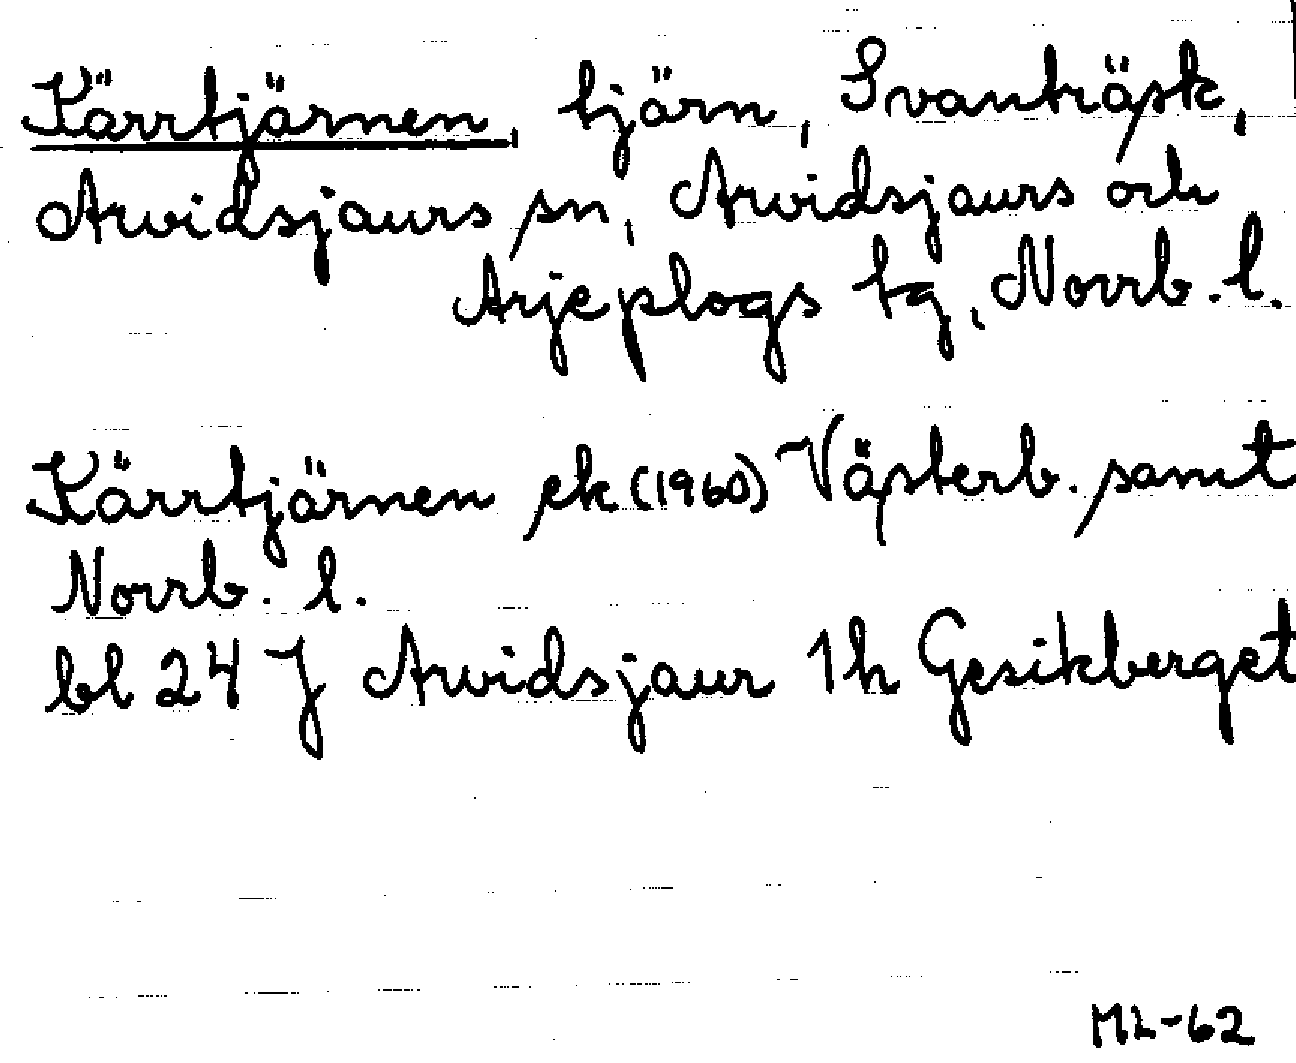 Kärrtjärnen, tjärn, Svanträsk,
Arvidsjaurs sn, Arvidsjaurs och
Arjeplogs tg, Norrb. l.
Kärrtjärnen ek (1960) Västerb. samt
Norrb. l.
bl 24 J Arvidsjaur 1h Gesikberget
ML-62